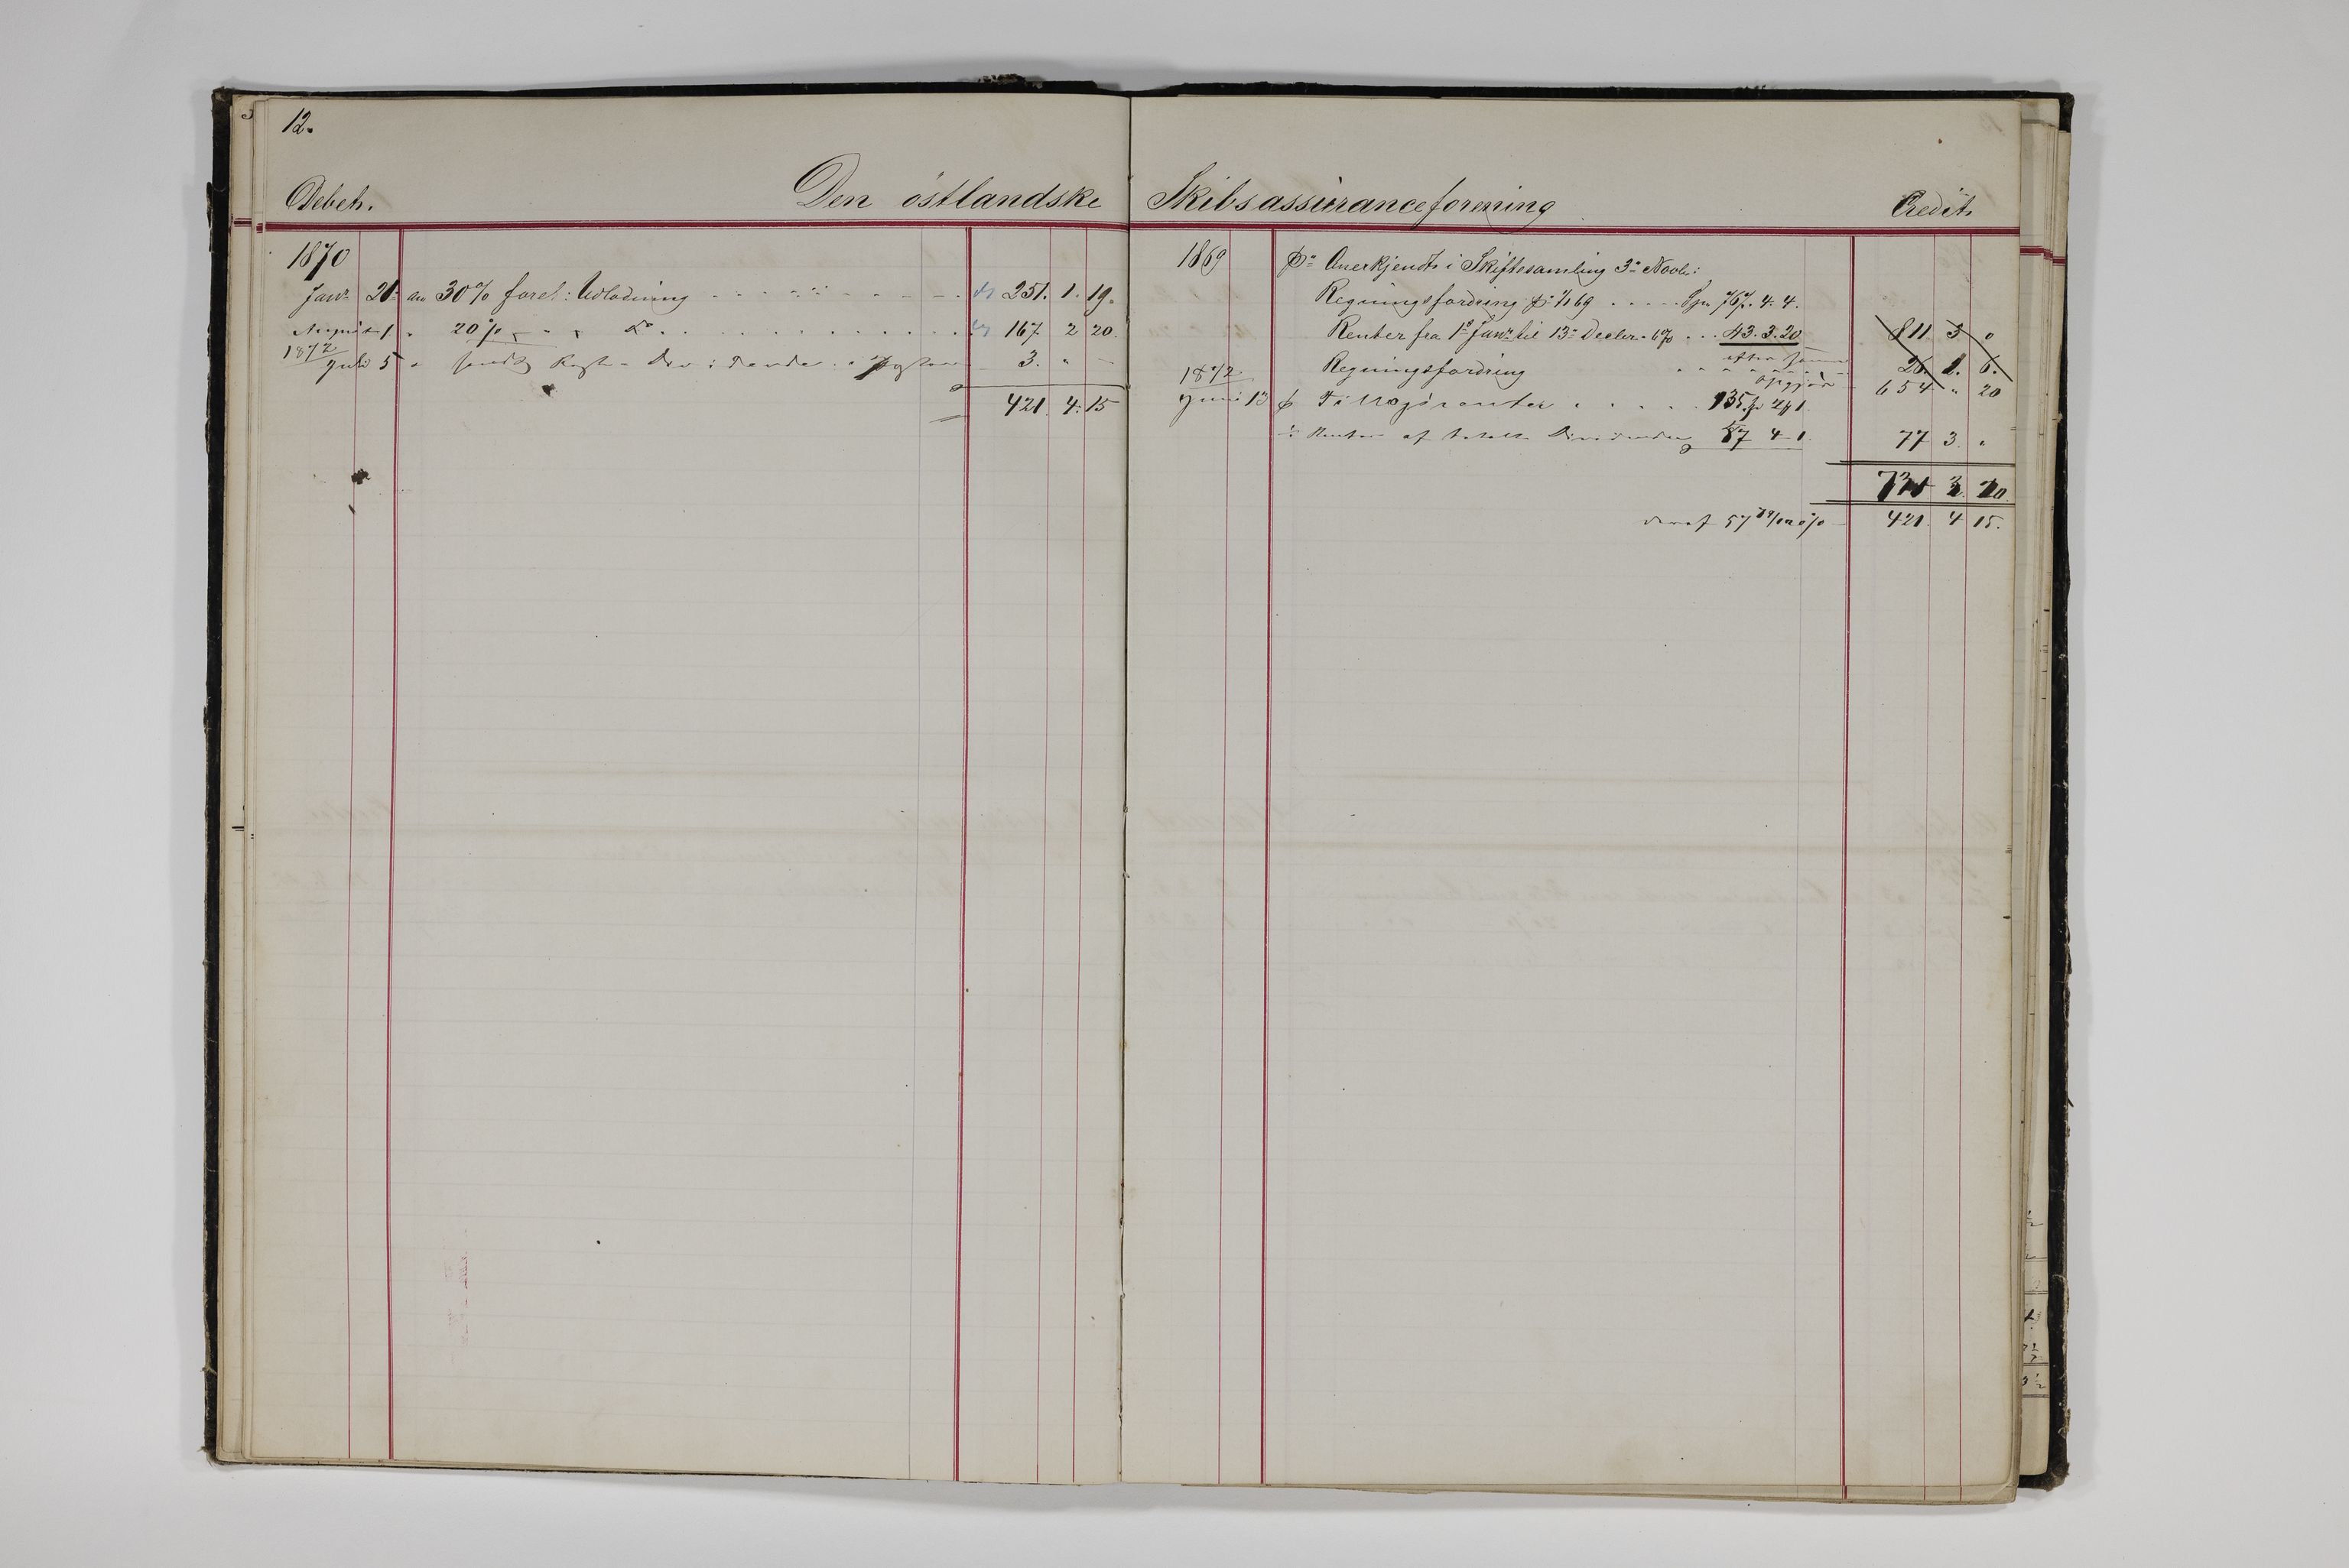 12.
Debet. Den östlandske Skibsassüranceforening Credit
1870
Janr 21 an 30% forel: Udlodning 251. 1. 19.
August 1 " 20% " " Do 167 2 20.
1872
Juli 5 " 3. " –
421. 4. 15
1869 pr Anerkjendt i Skiftesamling 3e Novbr:
Regningsfordring pr 1/1 69 Spn 767. 4. 4.
Renter fra 1e Janr til 13e Decbr. 6% 43. 3. 20 811 3 0
Regningsfordring 26. 1. 6.
654 " 20
1872
Juni 13 pr Tillægsrenter 135
÷ Renter af betalte Dividender 57 4 1 77 3 "
731 3 20
deraf 421 4 15.